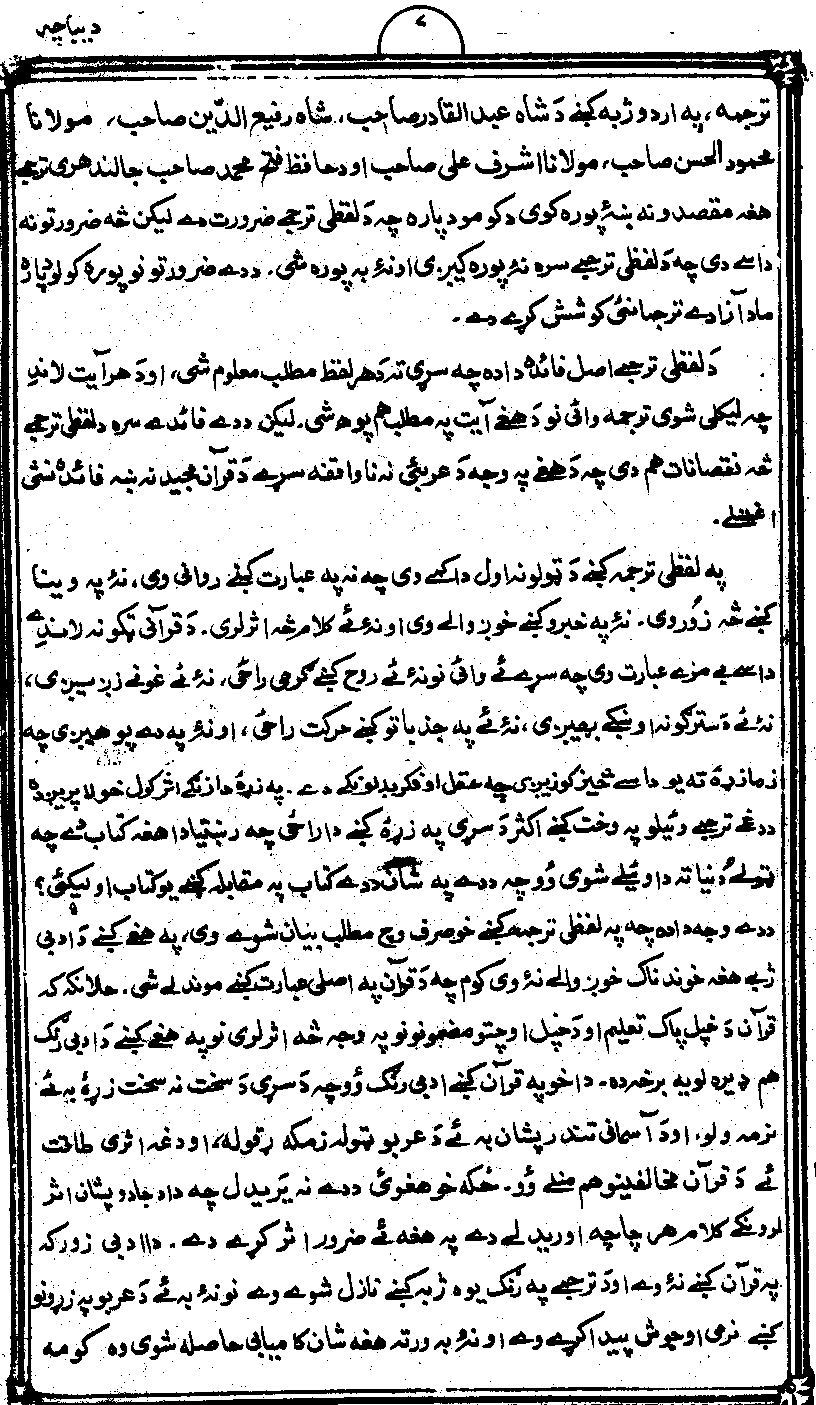 دیباچہ
۷
ترجمہ، په اردو ژبه کښے دَ شاہ عبدالقادر صاحب، شاہ رفیع الدّین صاحب، مولانا
محمود الحسن صاحب، مولانا اشرف علی صاحب او دحافظ فتح محمد صاحب جالندھری ترجمے
هغه مقصدونه ښهٔ پوره کوی دکومو دپاره چه دَ لفظی ترجمے ضرورت دے لیکن څه ضرورتونه
داسے دی چه دَ لفظی ترجمے سره نهٔ پوره کیږی او نهٔ به پوره شی. ددے ضرورتونو پوره کولو دپاره
ما دآزادے ترجمانئ کوشش کړے دے.
دَ لفظی ترجمے اصل فائده داده چه سړی ته دَ هر لفظ مطلب معلوم شی، او دَ هر آیت لاندِ
چه لیکلی شوی ترجمه وائی نو دَ هغے آیت په مطلب هم پوهه شی. لیکن ددے فائدے سره دلفظی ترجمے
څه نقصانات هم دی چه دَ هغے په وجه دَ عربئی نه ناواقفه سړے دَ قرآن مجید نه ښه فائده نشی
اغستلے.
په لفظی ترجمه کښے دَ ټولو نه اول داکمے دی چه نه په عبارت کښے روانی وی، نهٔ په وینا
کښے څه زور وی. نهٔ په خبرو کښے خوږ والے وی او نهٔ ئے کلام څه اثر لری. دَ قرآنی ټکو نه لاندِے
داسے بے مزے عبارت وی چه سړے ئے وائی نو نهٔ ئے روح کښے ګرمی راځی، نهٔ ئے غونے زیږیږی،
نهٔ ئے دَ سترګو نه اوښکے بهیږی، نهٔ ئے په جذباتو کښے حرکت راځی، او نهٔ په دے پوهیږی چه
زما زړهٔ ته یو داسے څیز کوزیږی چه عقل او فکر بدلونکے دے. په زړهٔ دا زنګے اثر کول خو لا پریږده
ددغے ترجمے وئیلو په وخت کښے اکثر دَ سړی په زړهٔ کښے دا راځی چه رښتیا دا هغه کتاب دے چه
ټولے دُنیا ته دا وئیلے شوی وُو چه ددے په شان ددے کتاب په مقابله کښے یو کتاب اولیکئ؟
ددے وجه داده چه په لفظی ترجمه کښے خو صرف وچ مطلب بیان شوے وی، په هغے کښے دَ ادبی
ژبے هغه خوندناک خوږ والے نهٔ وی کوم چه دَ قرآن په اصلی عبارت کښے موندلے شی. حلانکه که
قرآن دَ خپل پاک تعلیم او دَ خپل اوچتو مضمونونو په وجه څه اثر لری نو په هغے کښے دَ ادبی رنګ
هم ډیره لویه برخه ده. دا خو په قرآن کښے ادبی رنګ وُو چه دَ سړی دَ سخت نه سخت زړهٔ به ئے
نرمه ولو. او دَ آسمانی تندر پشان به ئے دَ عربو ټوله زمکه رقوله، او دغه اثری طاقت
ئے دَ قرآن مخالفینو هم منلے وُو. ځکه خو هغوئ ددے نه یَریدل چه داد جادو پشان اثر
لرونکے کلام هر چا چه اوریدلے دے په هغه ئے ضرور اثر کړے دے. دا ادبی زور که
په قرآن کښے نهٔ وے او دَ ترجمے په رنګ یوه ژبه کښے نازل شوے وے نو نهٔ به ئے دَ عربو په زړونو
کښے نرمی او جوش پیدا کړے وے او نهٔ به ورته هغه شان کامیابی حاصله شوی وه کومه